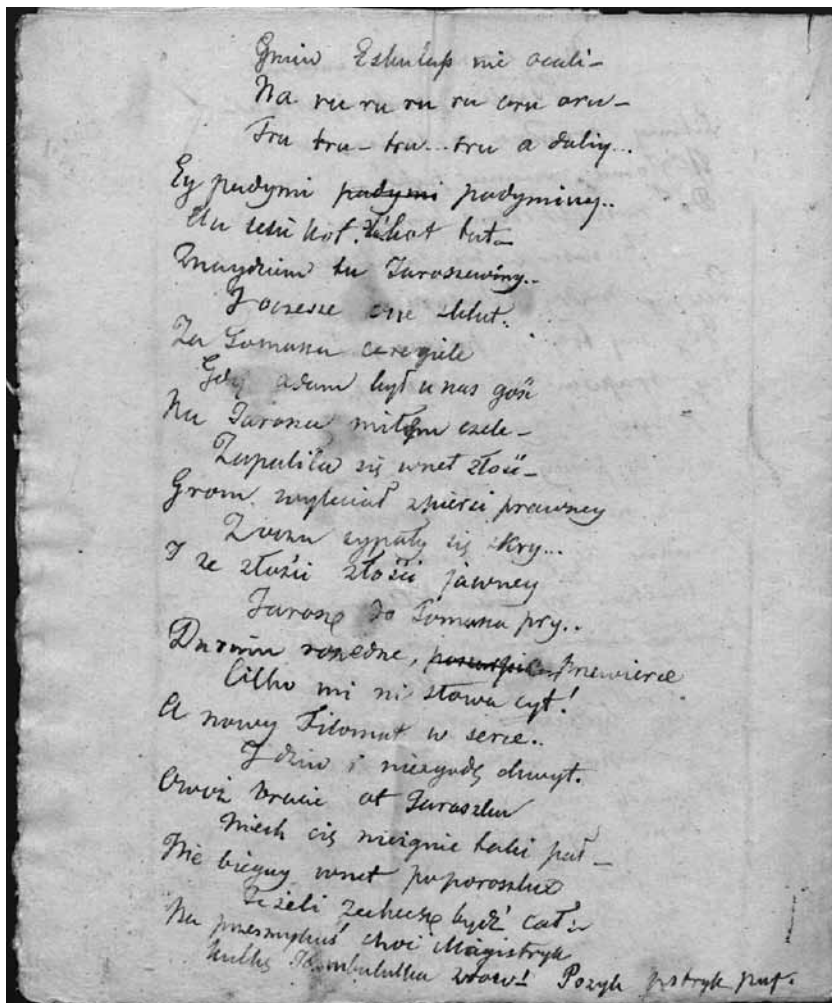 Gniew Eskulap nie ocali –
Na ru ru ru ru cru aru –
Tru tru – tru... tru a daliy...
Ey padymi padymi padyminy..
kot. kot tat –
Znaydziem tu Jaroszewiny..
I oczesze
Za Tomasza ceregiele
Gdy Adam był u nas gość
Na Jarosza miłym czele –
Zapaliła się wnet złość –
Grom wyleciał z piersi prawney
Z oczu sypały się skry...
I ze złości złości jawney
Jarosz do Tomasza pry..
Durniu rozedne, przewierce
Cilho mi ni słowa cyt!
A nowy Filomat w serce..
I dziw i niezgodę chwyt.
Owoż bracie ot Jaroszku
Niech cię nieżgnie taki pał –
Nie biegay wnet po poroszku
Jeżeli zechcesz bydź cał:
Na choć Magistryk
zdrow! Pozyk pstryk puf.